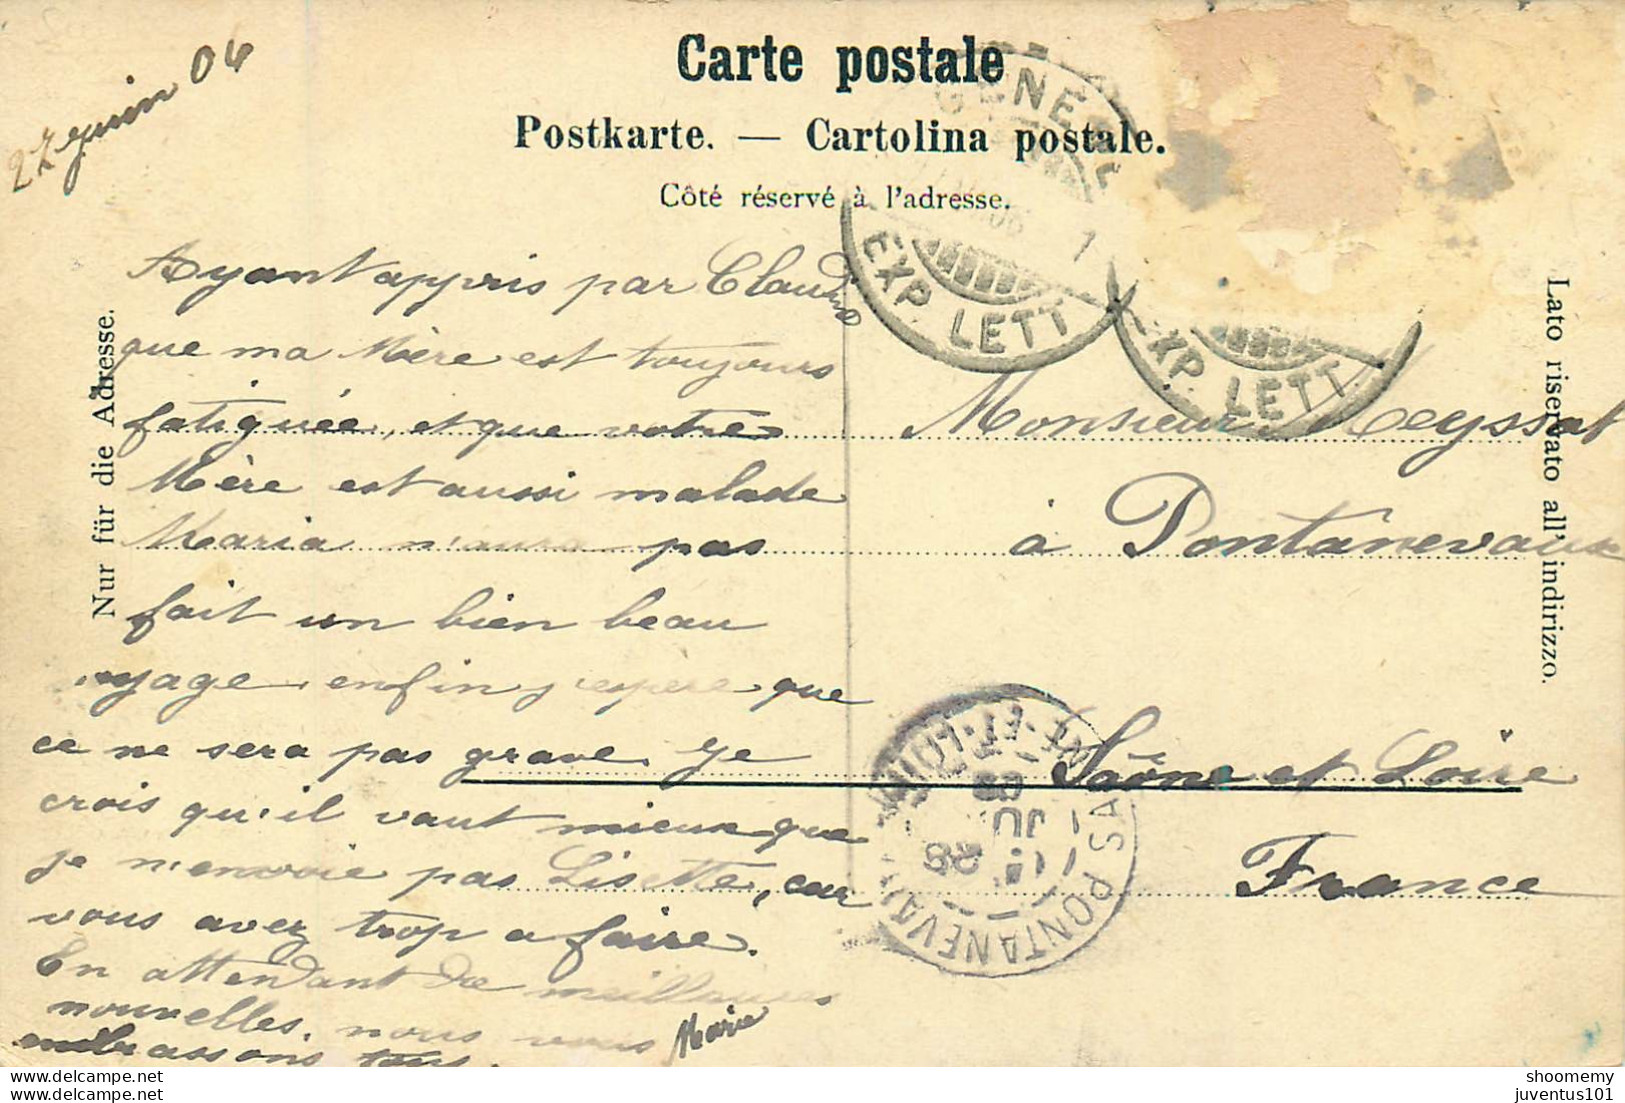 Carte postale
Postkarte. — Cartolina postale.
Côté réservé à l'adresse.
27 juin 06
Nur für die Adresse.
Lato riservato all' indirizzo.
EXP. LETT.
EXP. LETT.
Ayant appris par
que ma Mère est toujours
fatiguée, et que votre
Mère est aussi malade
Maria n'aura pas
fait un bien beau
voyage, enfin j'espère que
ce ne sera pas grave. Je
crois qu'il vaut mieux que
je n'envoie pas Lisette, car
vous avez trop a faire.
En attendant de meilleures
nouvelles, nous vous
embrassons tous.
Marie
Monsieur Meyssat
à Pontanevaux
Saône et Loire
France
PONTANEVAUX
28
shoomemy
juventus101